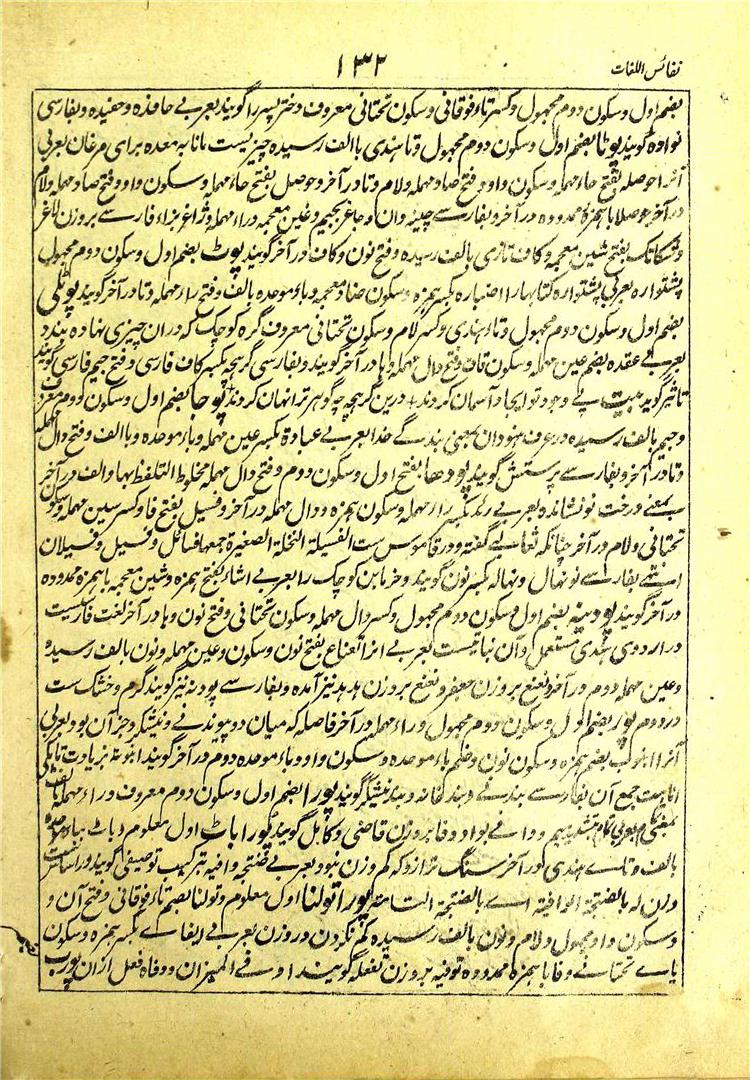 نفائس اللغات
۱۳۲
بضم اول و سکون دوم مجهول و کسر تاء فوقانی و سکون تحتانی معروف دختر پسر را گویند بعربے حافده و حفیده و بفارسی
نواده گویند پوٹا بضم اول و سکون دوم مجهول و تاء هندی با الف رسیده چیزیست مانا به معده برای مرغان بعربی
آنرا حوصله بفتح حاء مهمله و سکون واو و فتح صاد مهمله و لام و تا در آخر و حوصل بفتح حاء مهمله و سکون واو و فتح صاد مهمله و لام
در آخر حوصلا با همزه ممدوده در آخر و بفارسے چینه دان و جاغر بجیم و غین معجمه و راء مهمله و ژاغر بزاء فارسے بر وزن لاغر
و شکانک بفتح شین معجمه و کاف تازی بالف رسیده و فتح نون و کاف در آخر گویند پوٹ بضم اول و سکون دوم مجهول
پشتواره بعربی پشتواره کتابها را اضباره بکسر همزه و سکون ضاد معجمه و باء موحده بالف و فتح راء مهمله و تا در آخر گویند پوٹلی
بضم اول و سکون دوم مجهول و تاء هندی و کسر لام و سکون تحتانی معروف گره کوچک که در ان چیزی نهاده بندند
بعربے عقده بضم عین مهمله و سکون قاف و فتح دال مهمله و ها در آخر گویند و بفارسی گریچه بکسر کاف فارسی و فتح جیم فارسی گویند
تاثیر گوید بیت پے وجود تو ایجاد آسمان کردند + درین گریچه چه گوهر ترا نهان کردند پوجا بضم اول و سکون دوم معروف
و جیم بالف رسیده در عرف هنودان بمعنی بندگے خدا بعربے عبادة بکسر عین مهمله و باء موحده و با الف و فتح دال مهمله
و تا در آخر و بفارسے پرستش گویند پودها بفتح اول و سکون دوم و فتح دال مهمله مخلوط التلفظ بها و الف در آخر
بمعنے درخت نو نشانده بعربے رئد بکسر راء مهمله و سکون همزه و دال مهمله در آخر و فسیل بفتح فا و کسر سین مهمله و سکون
تحتانی و لام در آخر چنانکه ثعالبے گفته و در قاموس ست الفسیلة النخلة الصغیرة جمعها فسائل و فسیل و فسیلان
انتہے بفارسے نو نهال و نهاله بکسر نون گویند و خرما بن کوچک را بعربے اشاء بفتح همزه و شین معجمه با همزه ممدوده
در آخر گویند پودینه بضم اول و سکون دوم مجهول و کسر دال مهمله و سکون تحتانی و فتح نون و ها در آخر لغت فارسیست
در اردوی هندی مستعمل و آن نباتیست بعربے آنرا نعناع بفتح نون و سکون و عین مهمله و نون بالف رسیده
و عین مهمله دوم در آخر و نعنع بر وزن جعفر و نعنع بر وزن هدهد نیز آمده و بفارسے پودنه نیز گویند گرم و خشک ست
در دوم پور بضم اول و سکون دوم مجهول و راء مهمله در آخر فاصله که میان دو پیوند نے و نیشکر و جز آن بود بعربی
آنرا انبوب بضم همزه و سکون نون و ضم باء موحده و سکون واو و باء موحده دوم در آخر گویند انبوبة بزیادت تا یکی
انابیب جمع آن بفارسے بند نے و بند نیشکر گویند پورا بضم اول و سکون دوم معروف و راء مهمله بالف
بمعنی تمام بعربی تام بتشدید میم و وافے بواو و فا بر وزن قاضی و کامل گویند پورا باٹ اول معلوم و باٹ بباء موحده
بالف و تاے هندی در آخر سنگ ترازو که کم وزن نبود بعربے صنجه وافیه بترکیب توصیفی گویند و در اساس ست
وزن له بالصنجة الوافیة اے بالصنجة التامة پورا تولنا اول معلوم و تولنا بضم تاء فوقانی و فتح آن و
و سکون واو مجهول و لام و نون بالف رسیده کم نکردن در وزن بعربے ایفاء بکسر همزه و سکون
یاے تحتانے و فا با همزه ممدوده توفیه بر وزن تفعله گویند اوفے المیزان و وفاه فعل از ان پورب